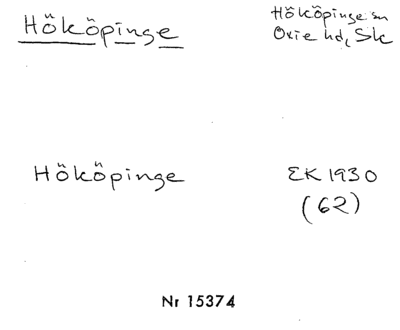 Hököpinge
Hököpinge sn
Oxie hd, Sk
Hököpinge
EK 1930
(62)
Nr 15374